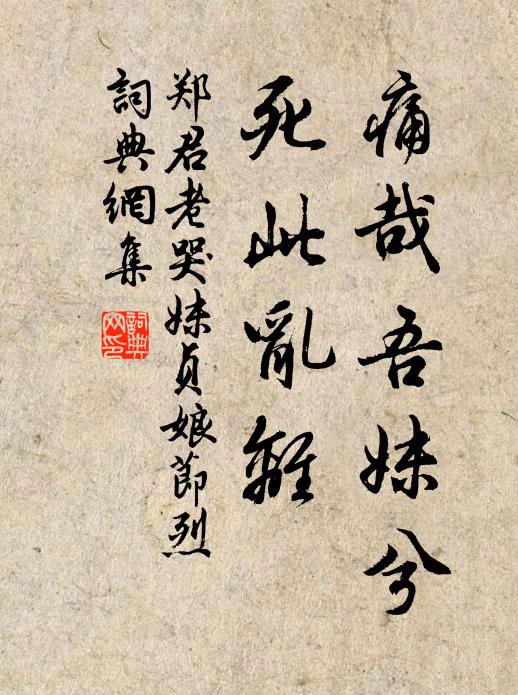 痛哉吾妹兮
死此亂離
郑君老哭妹贞娘節烈
詞典網集
詞典
网印